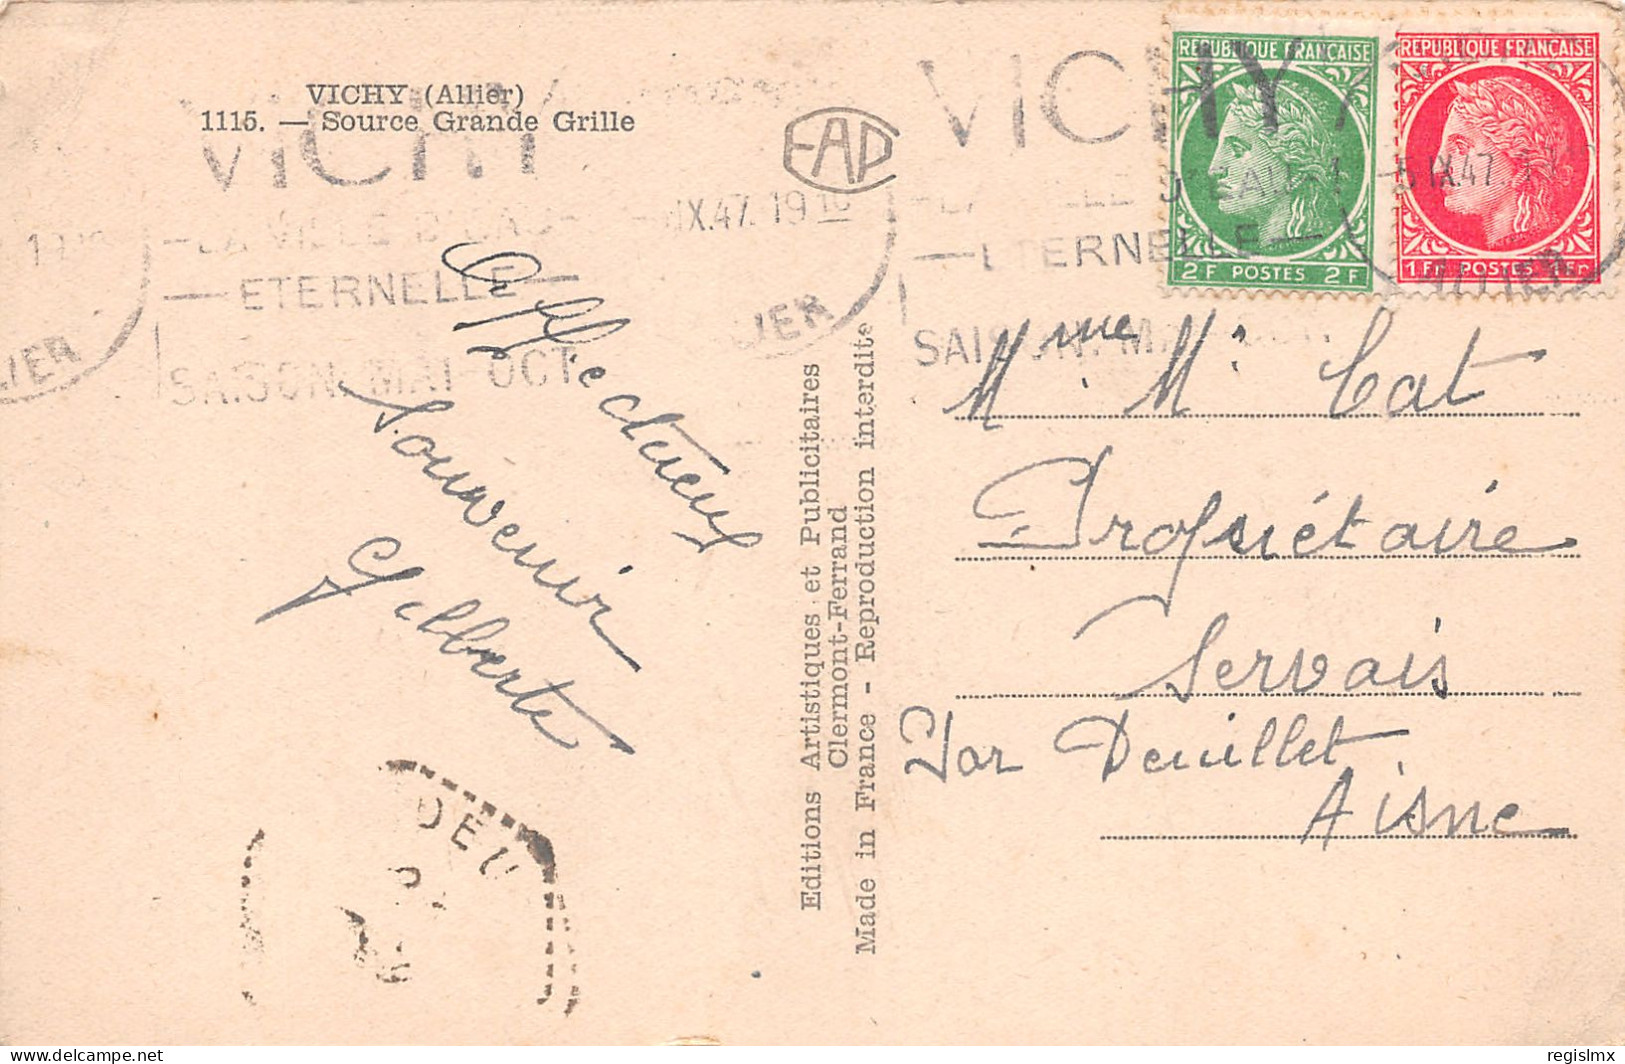 VICHY (Allier)
1115. — Source Grande Grille
EAP
VICHY
LA VILLE D'EAU
— ETERNELLE —
SAISON. MAI-OCT.
IX.47. 19 10
LIER
VICHY
D'EAU
— ETERNELLE —
SAISON. MAI
-5 IX.47.
ALLIER
REPUBLIQUE FRANÇAISE
2 F POSTES 2 F
REPUBLIQUE FRANÇAISE
1 Fr POSTES 1 Fr
Affectueux
Souvenir
Gilberte
Editions Artistiques et Publicitaires
Clermont-Ferrand
Made in France - Reproduction interdite
Mme M. Cat
Propriétaire
Servais
Par Deuillet
Aisne
DEU
delcampe.net
regislmx